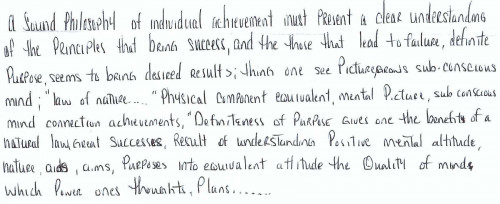 A Sound Philosophy of individual achievement must Present a clear understanding
of the Principles that bring success, and the those that lead to failure, definite
Purpose, seems to bring desired results; thing one see Picture, grows sub-conscious
mind; "law of nature...." Physical Component equivalent, mental Picture, sub conscious
mind connection achievements, "Definiteness of Purpose gives one the benefits of a
natural law, great Successes, Result of understanding Positive mental attitude,
nature, aids, aims, Purposes into equivalent attitude the Quality of mind,
which Power ones thoughts, Plans.......